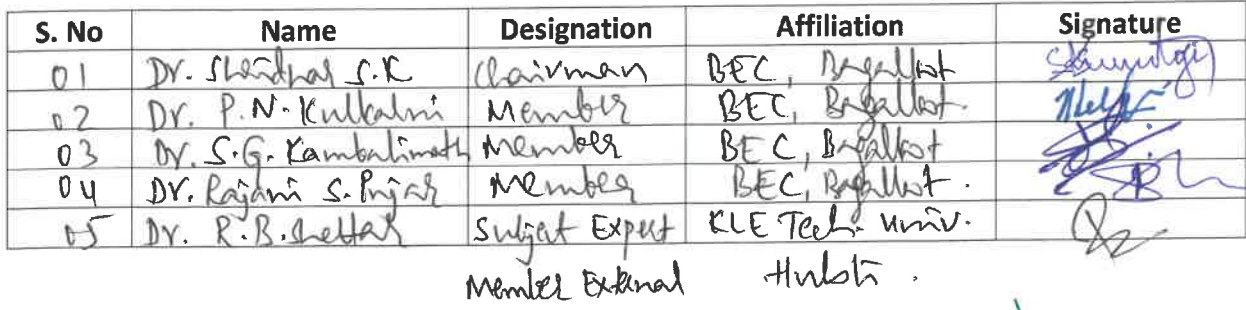 S. No Name Designation Affiliation Signature
01 Dr. Shridhar S.K Chairman BEC, Bagalkot
02 Dr. P.N. Kulkarni Member BEC, Bagalkot.
03 Dr. S.G. Kambalimath Member BEC, Bagalkot
04 Dr. Rajani S. Pujar Member BEC, Bagalkot.
05 Dr. R.B. Shettar Subject Expert KLE Tech. Univ.
Member External Hubli.